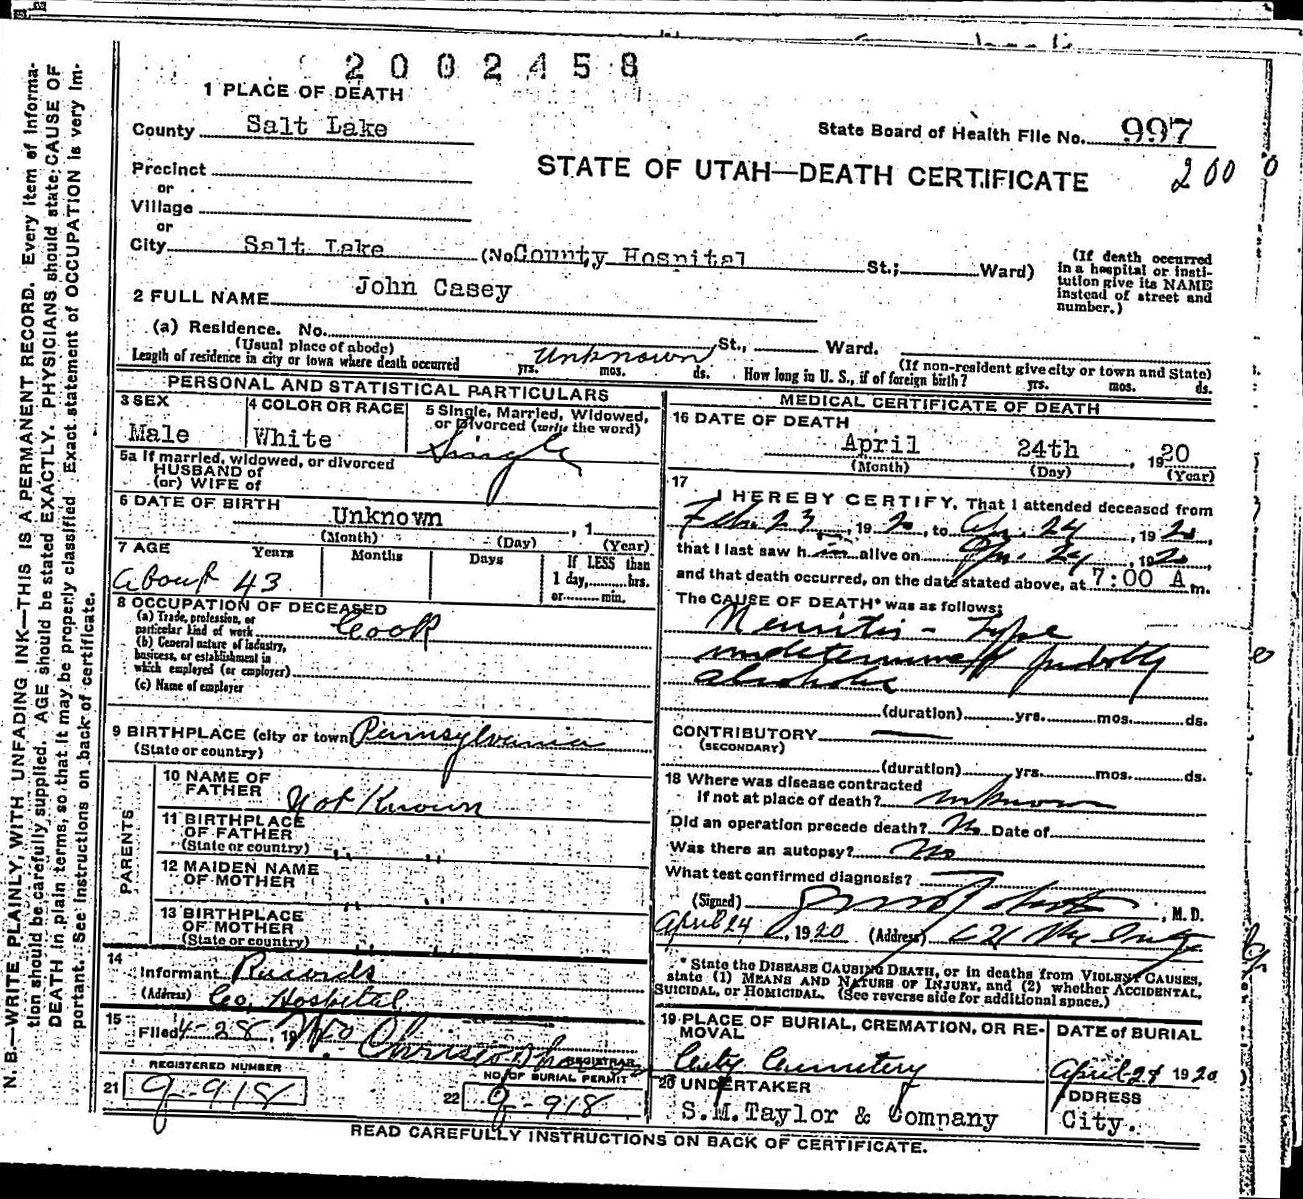 2002458
1 PLACE OF DEATH
County Salt Lake
State Board of Health File No. 997
STATE OF UTAH—DEATH CERTIFICATE
200
Precinct
or
Village
or
City Salt Lake (No. County Hospital St.; Ward)
(If death occurred in a hospital or institution give its NAME instead of street and number.)
2 FULL NAME John Casey
(a) Residence. No. St., Ward.
(Usual place of abode) (If non-resident give city or town and State)
Length of residence in city or town where death occurred unknown yrs. mos. ds. How long in U. S., if of foreign birth? yrs. mos. ds.
PERSONAL AND STATISTICAL PARTICULARS
3 SEX Male
4 COLOR OR RACE White
5 Single, Married, Widowed, or Divorced (write the word) Single
5a If married, widowed, or divorced
HUSBAND of
(or) WIFE of
6 DATE OF BIRTH Unknown , 1
(Month) (Day) (Year)
7 AGE Years Months Days If LESS than
about 43 1 day, hrs.
or min.
8 OCCUPATION OF DECEASED
(a) Trade, profession, or
particular kind of work Cook
(b) General nature of industry,
business, or establishment in
which employed (or employer)
(c) Name of employer
9 BIRTHPLACE (city or town) Pennsylvania
(State or country)
PARENTS
10 NAME OF
FATHER Not Known
11 BIRTHPLACE
OF FATHER
(State or country) " "
12 MAIDEN NAME
OF MOTHER " "
13 BIRTHPLACE
OF MOTHER
(State or country) " "
14
Informant Records
(Address) Co. Hospital
15
Filed 4-28, 19
REGISTRAR
REGISTERED NUMBER
21 9-918
NO. OF BURIAL PERMIT
22 9-918
MEDICAL CERTIFICATE OF DEATH
16 DATE OF DEATH
April 24th, 1920
(Month) (Day) (Year)
17
I HEREBY CERTIFY, That I attended deceased from
Feb. 23, 1920, to Ap. 24, 1920,
that I last saw him alive on Ap. 24, 1920,
and that death occurred, on the date stated above, at 7:00 A m.
The CAUSE OF DEATH* was as follows:
Neuritis - Type
undetermined probably
alcoholic
(duration) yrs. mos. ds.
CONTRIBUTORY
(SECONDARY)
(duration) yrs. mos. ds.
18 Where was disease contracted
If not at place of death? unknown
Did an operation precede death? No Date of
Was there an autopsy? No
What test confirmed diagnosis?
(Signed) , M. D.
April 24, 1920 (Address)
* State the DISEASE CAUSING DEATH, or in deaths from VIOLENT CAUSES,
state (1) MEANS AND NATURE OF INJURY, and (2) whether ACCIDENTAL,
SUICIDAL, or HOMICIDAL. (See reverse side for additional space.)
19 PLACE OF BURIAL, CREMATION, OR RE-
MOVAL
City Cemetery
DATE of BURIAL
April 28 1920
20 UNDERTAKER
S.M.Taylor & Company
ADDRESS
City.
READ CAREFULLY INSTRUCTIONS ON BACK OF CERTIFICATE.
N. B.—WRITE PLAINLY, WITH UNFADING INK—THIS IS A PERMANENT RECORD. Every item of informa-
tion should be carefully supplied. AGE should be stated EXACTLY. PHYSICIANS should state CAUSE OF
DEATH in plain terms, so that it may be properly classified. Exact statement of OCCUPATION is very im-
portant. See instructions on back of certificate.